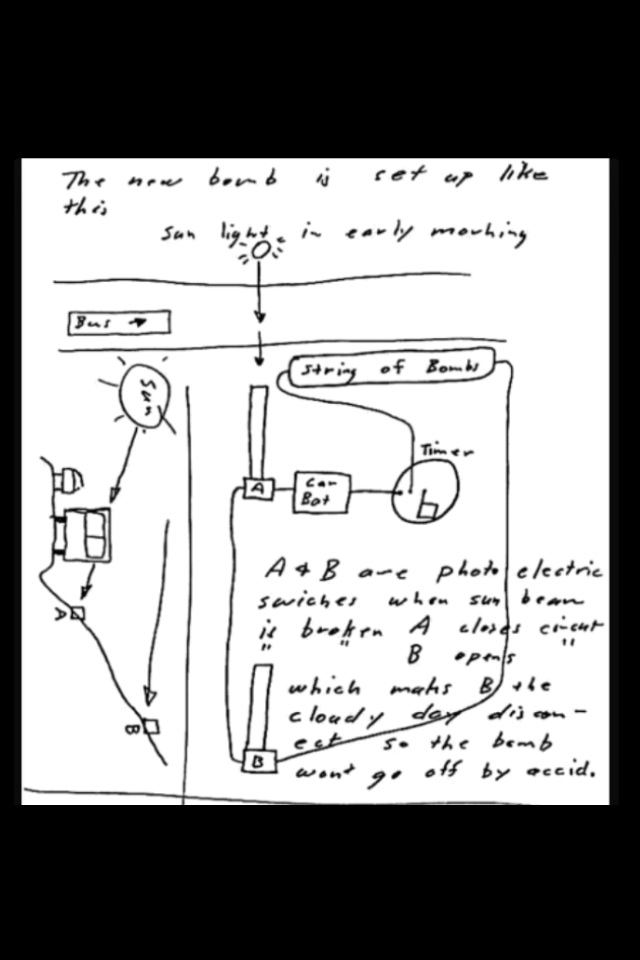 The new bomb is set up like
this
sun light in early morning
Bus
Sun
A
B
String of Bombs
Timer
A
Car
Bat
A & B are photo electric
swiches when sun beam
is broken A closes circut
" " B opens "
B
which maks B the
cloudy day discon-
ect so the bomb
wont go off by accid.